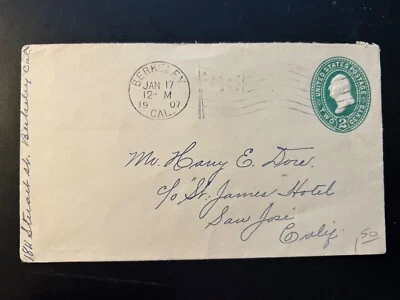 1811 Stuart St. Berkeley Cal.
BERKELEY
JAN 17
12- M
19 07
CAL.
UNITED STATES POSTAGE
TWO 2 CENTS
Mr. Harry E. Dore.
c/o "St. James" Hotel
San José
Calif.
1.50